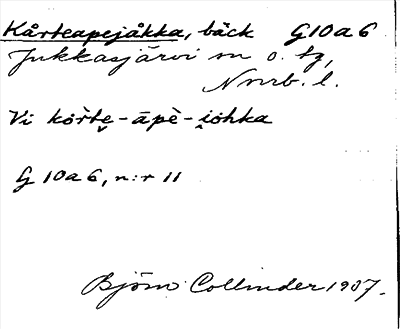 Kårteapejåkka, bäck G10a6
Jukkasjärvi sn o. tg,
Norrb. l.
Vi kořtḙ-āpè-i̯ohka
G 10a6, n:r 11
Björn Collinder 1937.